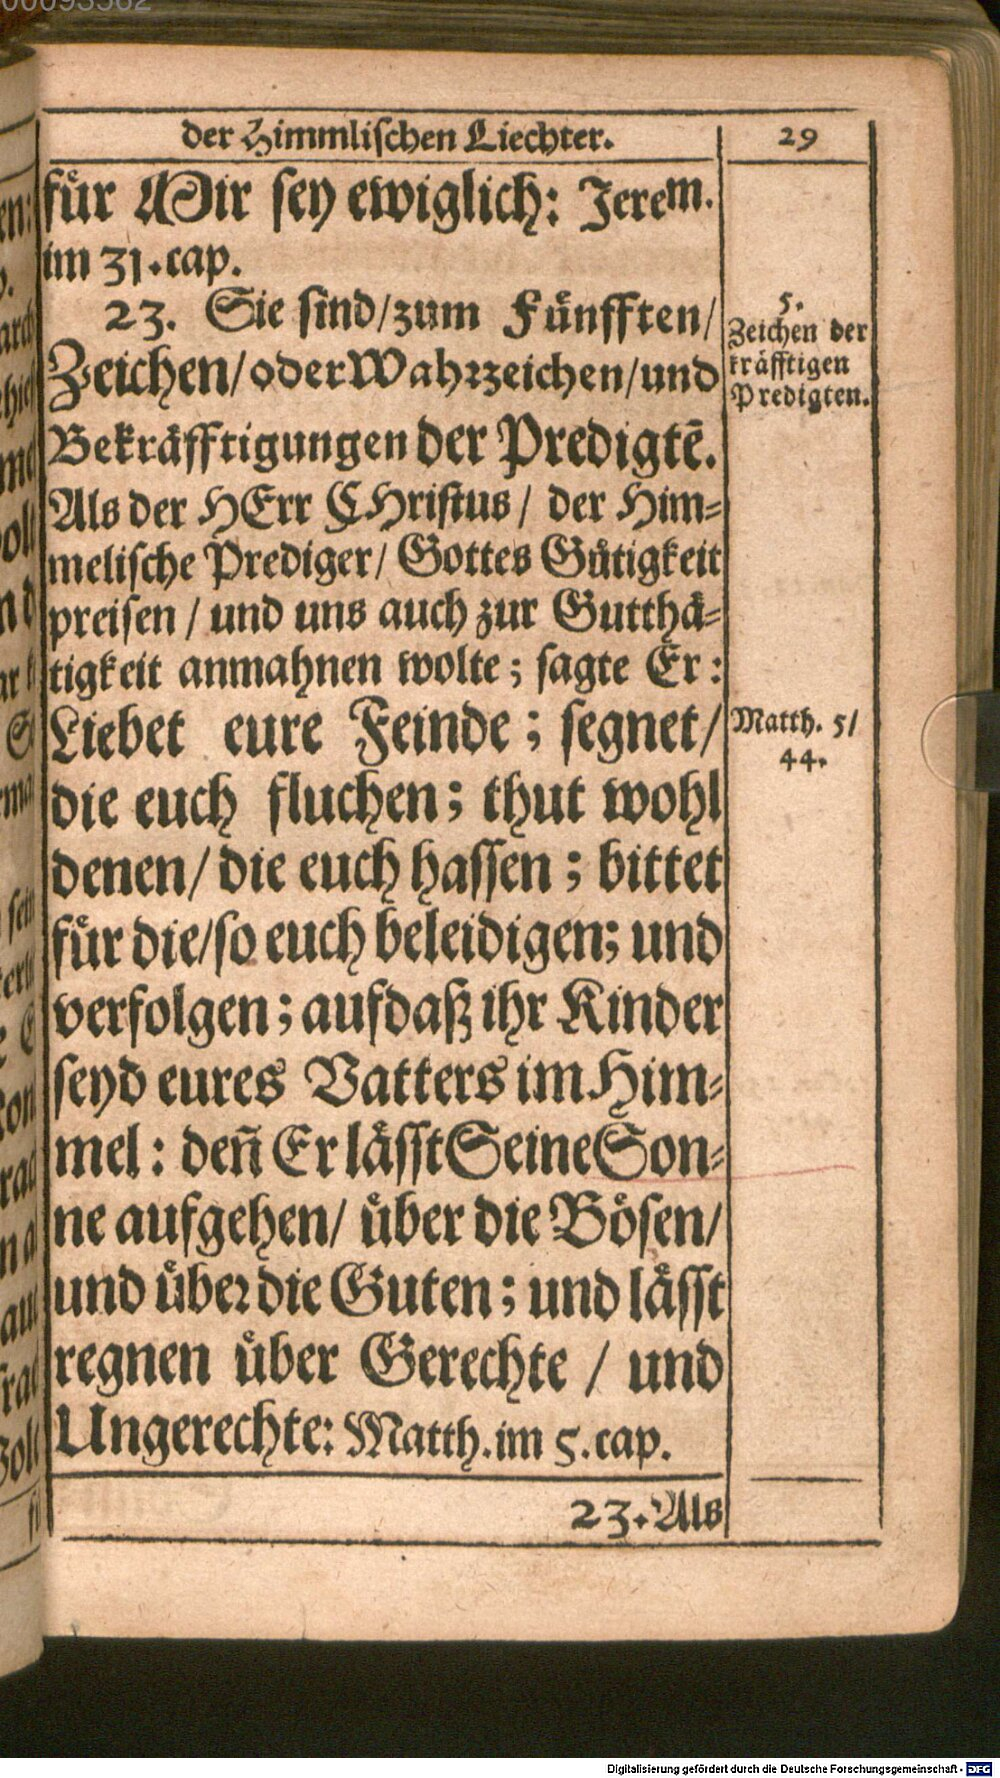 der Himmlischen Liechter.
29
fuͤr Mir sey ewiglich: Jerem.
im 31. cap.
23. Sie sind/ zum Fuͤnfften/
Zeichen/ oder Wahrzeichen/ und
Bekraͤfftigungen der Predigtē.
Als der HErr CHristus/ der Him⸗
melische Prediger/ Gottes Guͤtigkeit
preisen/ und uns auch zur Gutthaͤ⸗
tigkeit anmahnen wolte; sagte Er:
Liebet eure Feinde; segnet/
die euch fluchen; thut wohl
denen/ die euch hassen; bittet
fuͤr die/ so euch beleidigen; und
verfolgen; aufdaß ihr Kinder
seyd eures Vatters im Him⸗
mel: deñ Er laͤsst Seine Son⸗
ne aufgehen/ uͤber die Boͤsen/
und uͤber die Guten; und laͤsst
regnen uͤber Gerechte/ und
Ungerechte: Matth. im 5. cap.
23. Als
5.
Zeichen der
kraͤfftigen
Predigten.
Matth. 5/
44.
Digitalisierung gefördert durch die Deutsche Forschungsgemeinschaft - DFG